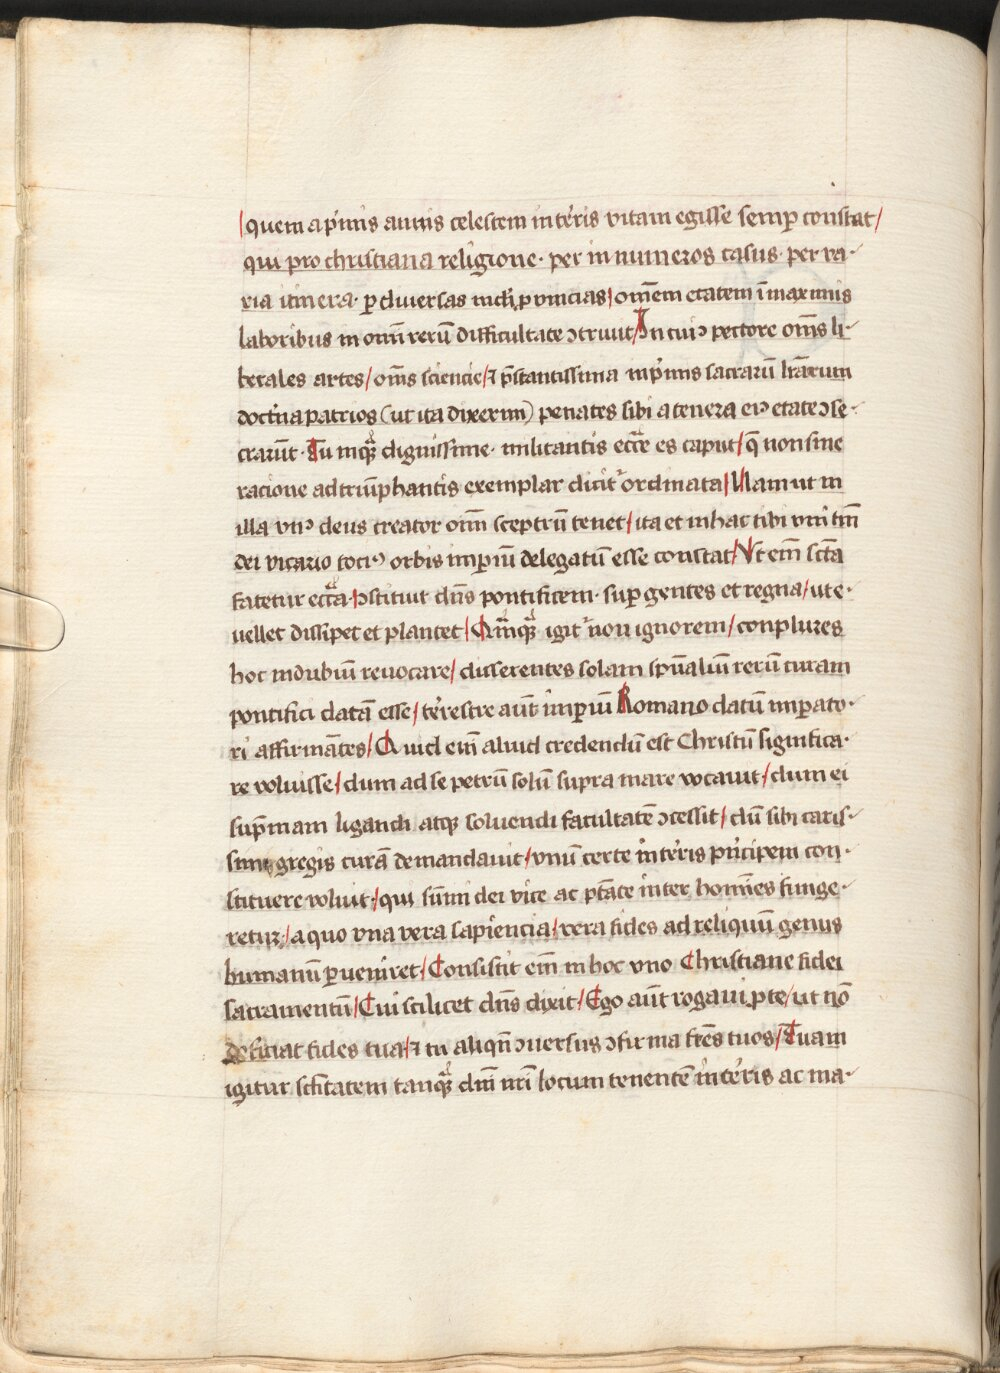 quem a pͥmis annis celestem in teͬris vitam egisse semꝑ constat/
qui pro christiana religione· per innumeros casus· per va-
ria itinera· ꝑ diuersas mūdi ꝓvincias/ om̄em etatem ī maximis
laboribus in om̄i rerū difficultate ↄtriuit/ In cuiꝰ pectore om̄s li-
berales artes/ om̄s sciencie/ ⁊ p̄stantissima inpͥmis sacrarū lr̄arum
doctͥna patrios (ut ita dixerim) penates sibi a tenera eiꝰ etate ↄse-
crarūt· Tu inqᷓꝫ dignissime· militantis ecc̄e es caput/ q̄ non sine
racione ad triūphantis exemplar dicitᷣ ordinata/ Nam ut in
illa vnꝰ deus creator om̄i sceptrū tenet/ ita et in hac tibi vni tm̄
dei vicario tociꝰ orbis imꝑiū delegatū esse constat/ Vt em̄ sctā
fatetur eccᷓa ↄstituit dn̄s pontificem· suꝑ gentes et regna/ ut e-
uellet dissipet et plantet/ Qm̄qᷓꝫ igitᷣ non ignorem/ conplures
hoc in dubiū reuocare/ disserentes solam spūaliū rerū curam
pontifici datā esse/ teͬrestre aūt imꝑiū Romano datū imꝑato-
ri affirmātes/ Quid em̄ aliud credendū est Christū significa-
re voluisse/ dum ad se petrū solū supra mare vocauit/ dum ei
sup̄mam ligandi atqꝫ soluendi facultatē ↄcessit/ dū sibi caris-
simi gregis curā demandauit/ vnū certe in teͬris pͥncipem con-
stituere voluit/ qui sūmi dei vice ac ptāte inter homīes funge-
retur/ a quo vna vera sapiencia/ vera fides ad reliquū genus
humanū ꝑueniret/ Consistit em̄ in hoc vno Christiane fidei
sacramentū/ Cui scilicet dn̄s dixit/ Ego aūt rogaui ꝓ te/ ut nō
deficiat fides tua/ ⁊ tu aliqn̄ ↄuersus ↄfirma fr̄es tuos/ Tuam
igitur scītatem tanqᷓꝫ dn̄i nr̄i locum tenentē in teͬris ac ma-